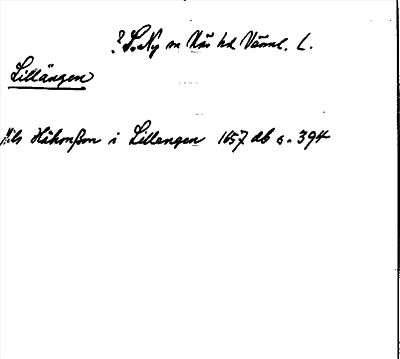 ? S. Ny sn Näs hd Värml. L.
Lillängen
Nils Håkonßon i Lillengen 1657 db s. 394